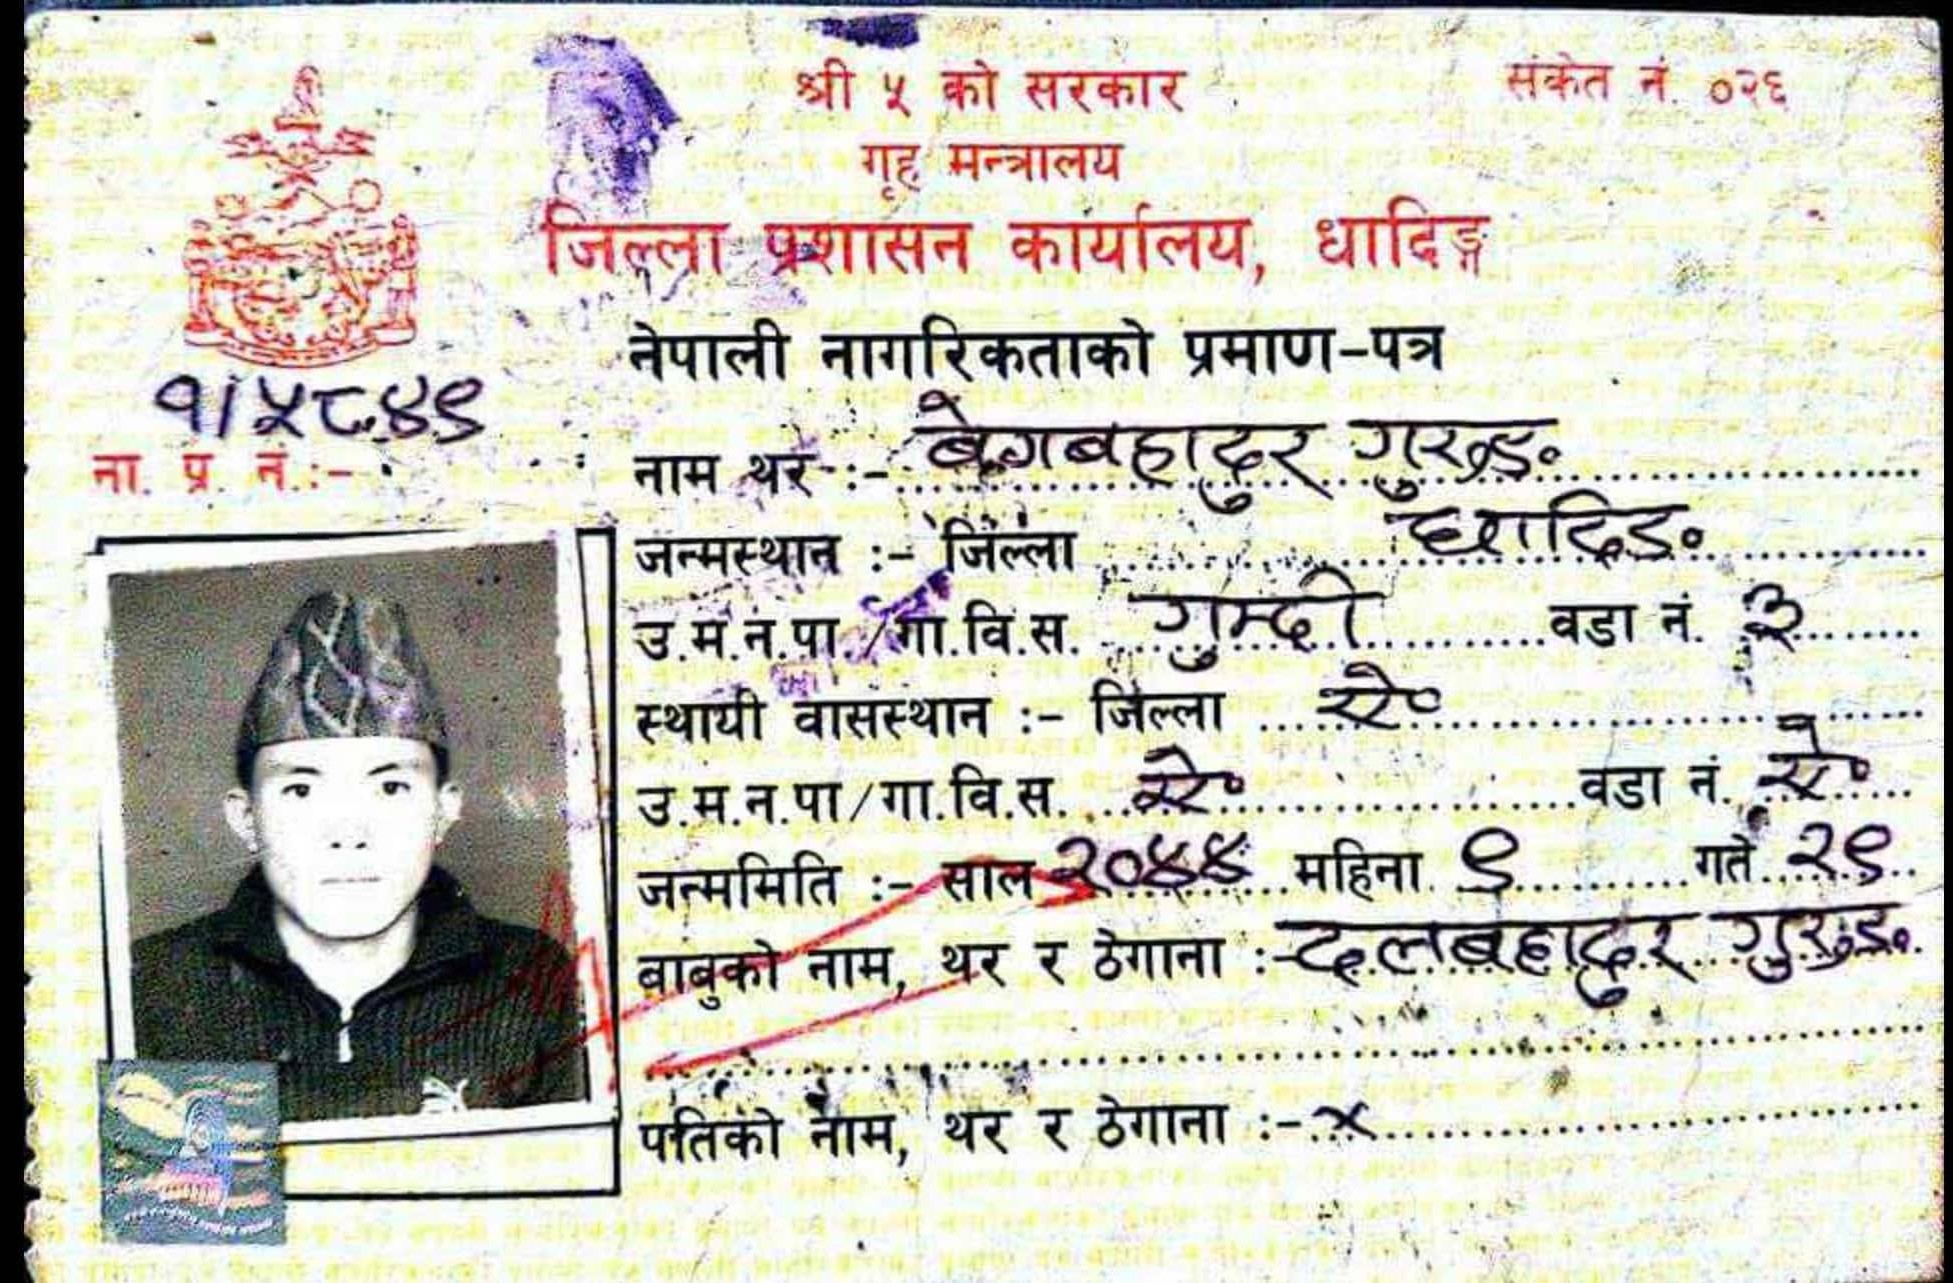 श्री ५ को सरकार
संकेत नं. ०२६
गृह मन्त्रालय
जिल्ला प्रशासन कार्यालय, धादिङ्ग
नेपाली नागरिकताको प्रमाण-पत्र
१/५८४९
ना. प्र. नं.:-
नाम थर :- बेगबहादुर गुरुङ॰
जन्मस्थान :- जिल्ला धादिङ॰
उ.म.न.पा./गा.वि.स. गुम्दी वडा नं. ३
स्थायी वासस्थान :- जिल्ला ऐ॰
उ.म.न.पा/गा.वि.स. ऐ॰ वडा नं. ऐ॰
जन्ममिति :- साल २०४४ महिना ९ गते २९
बाबुको नाम, थर र ठेगाना :- दलबहादुर गुरुङ॰
पतिको नाम, थर र ठेगाना :- x